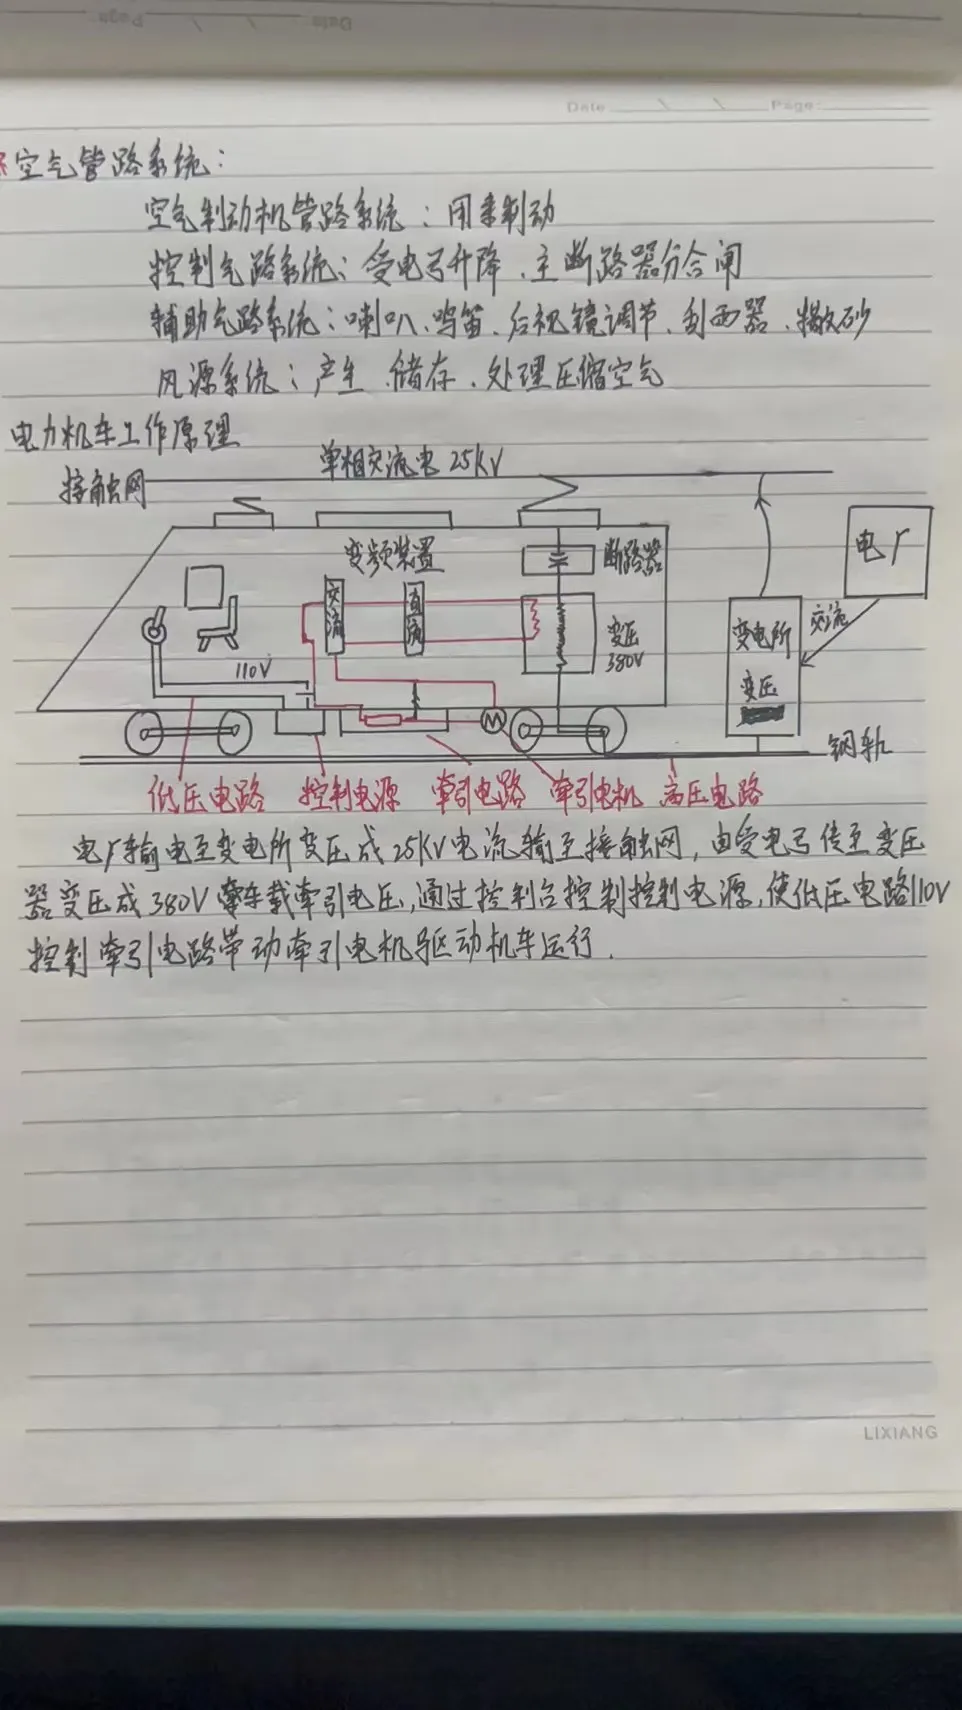 Date
Page
Date Page:
空气管路系统:
空气制动机管路系统:用来制动
控制气路系统:受电弓升降、主断路器分合闸
辅助气路系统:喇叭、鸣笛、后视镜调节、刮雨器、撒砂
风源系统:产生、储存、处理压缩空气
电力机车工作原理
单相交流电25KV
接触网
变频装置
断路器
电厂
交流
直流
变压
380V
变电所
交流
变压
110V
M
钢轨
低压电路 控制电源 牵引电路 牵引电机 高压电路
电厂输电至变电所变压成25KV电流输至接触网,由受电弓传至变压
器变压成380V牵车载牵引电压,通过控制台控制控制电源,使低压电路110V
控制牵引电路带动牵引电机驱动机车运行.
LIXIANG